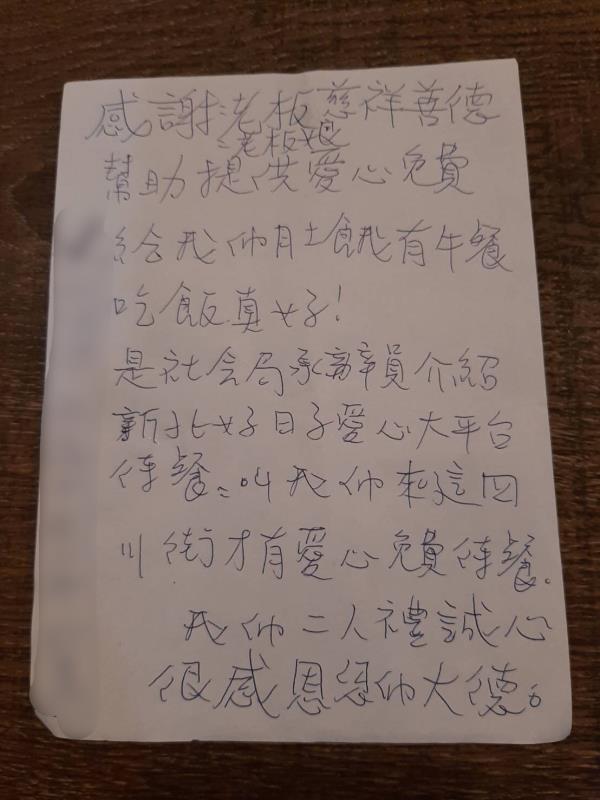 感謝老板慈祥善德
老板娘
幫助提供愛心免費
給我們肚餓有午餐
吃飯真好！
是社会局承辦員介紹
新北好日子愛心大平台
待餐叫我們來這四
川街才有愛心免費待餐。
我們二人禮誠心
很感恩你們大德。